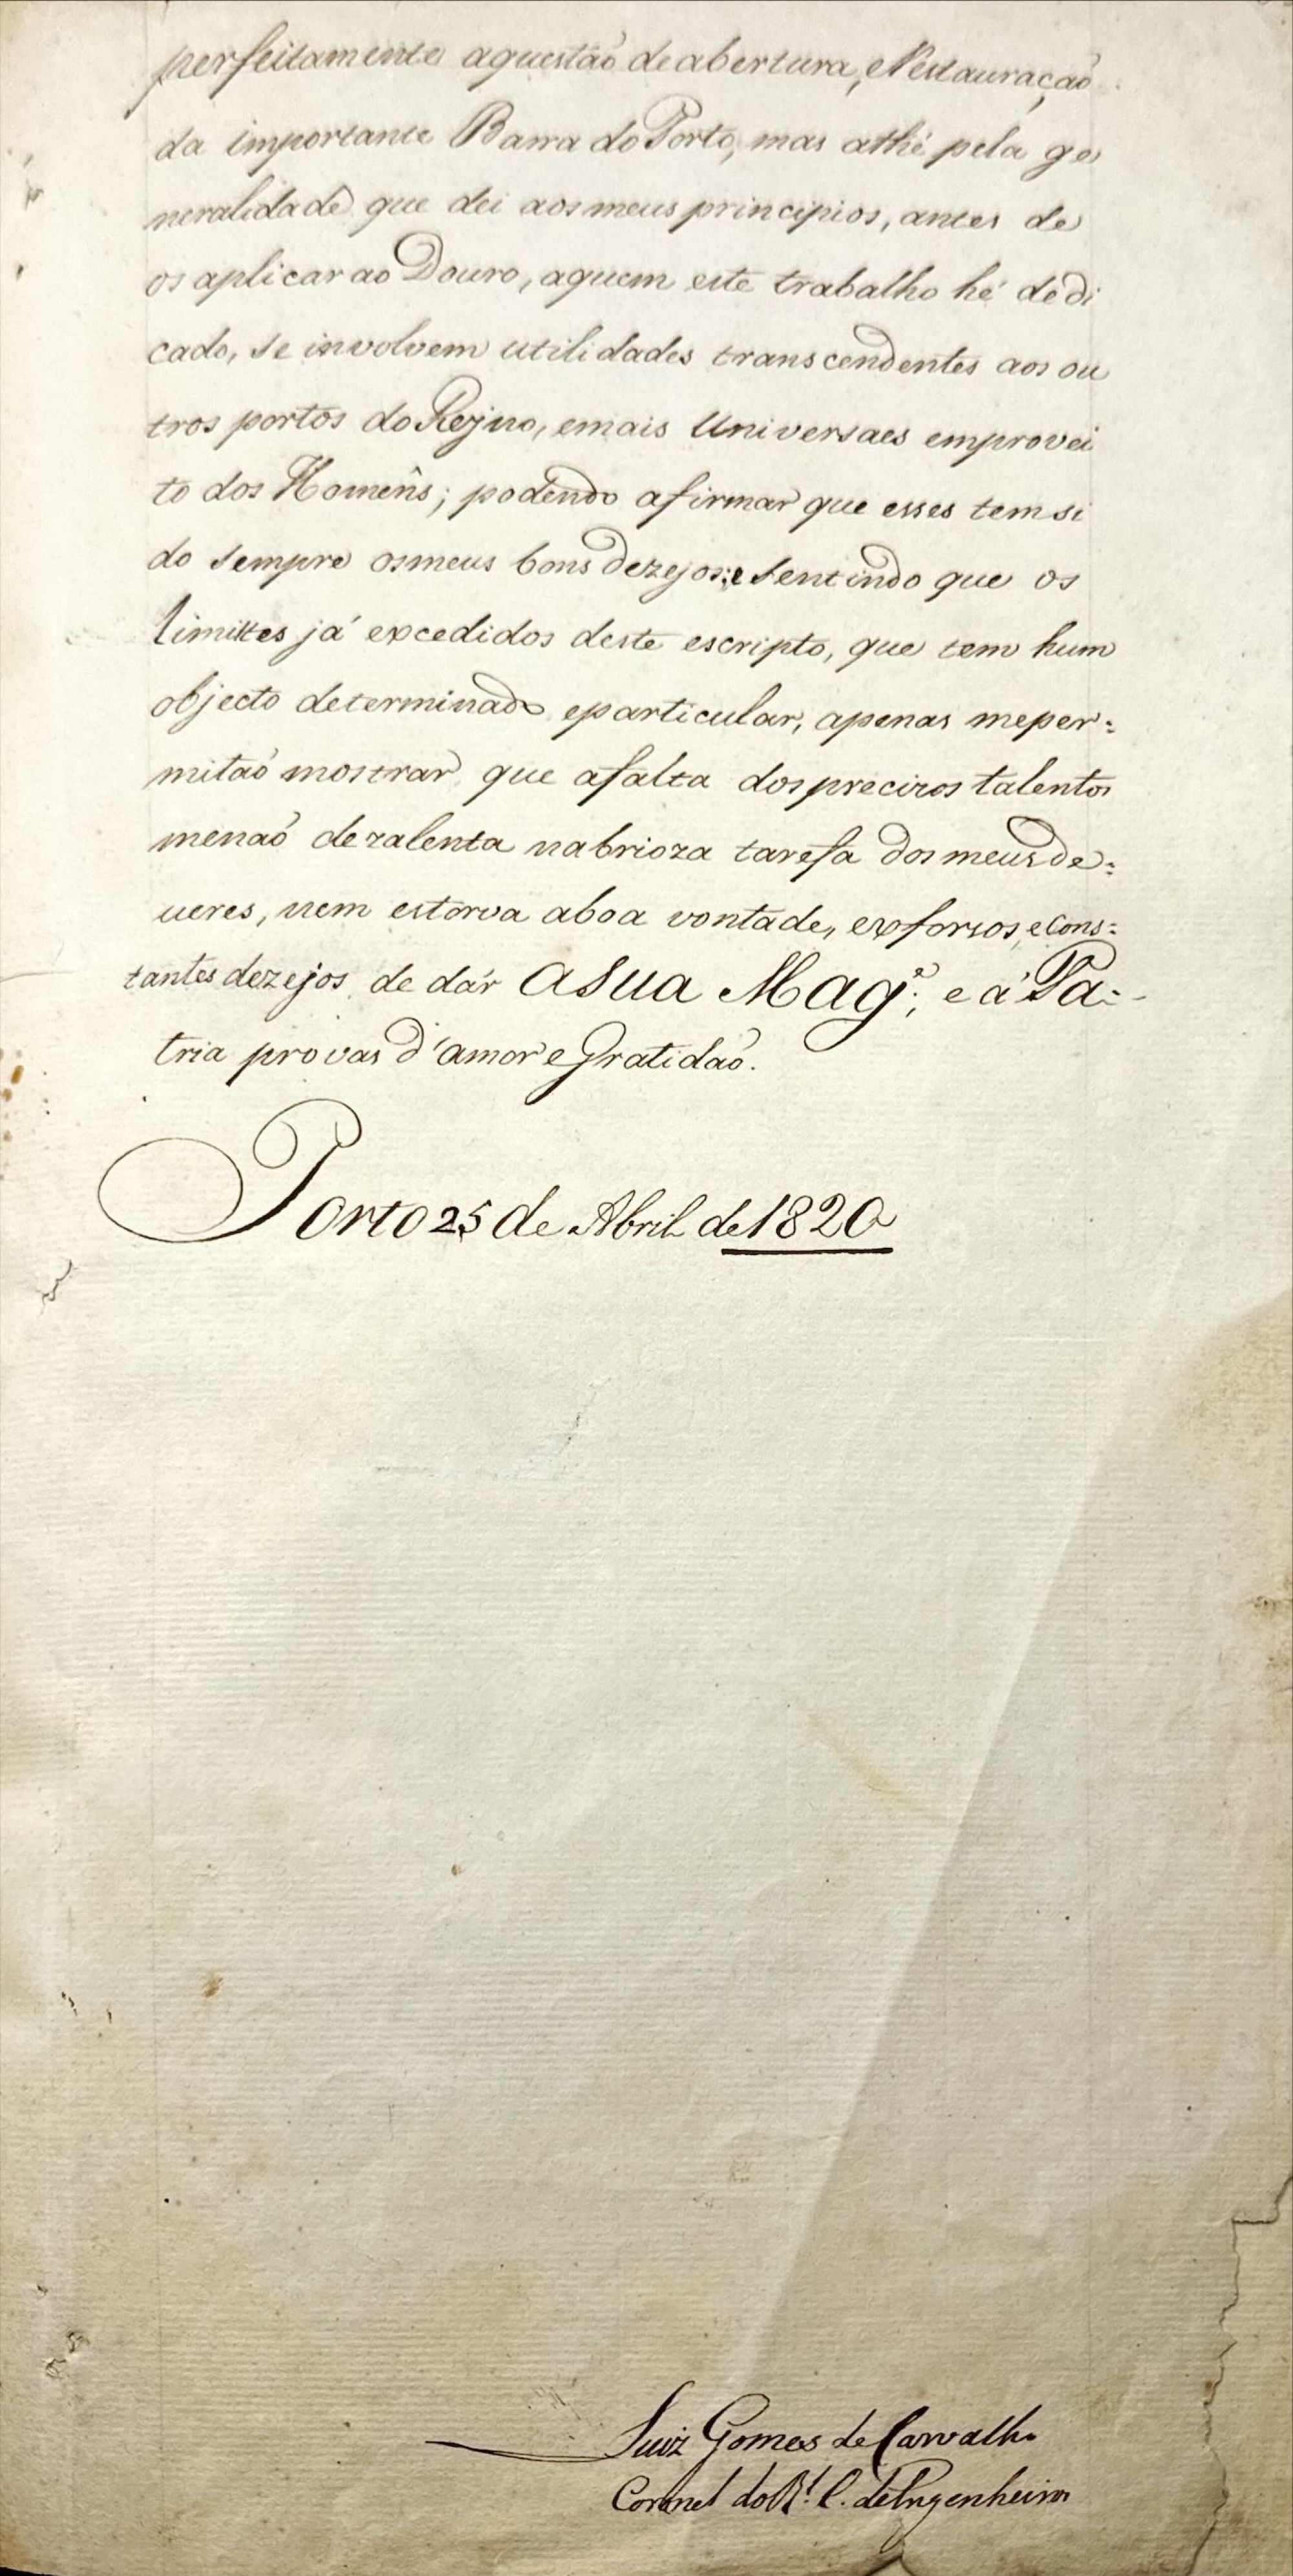 perfeitamente aquestaõ de abertura, e Restauraçaõ
da importante Barra do Porto, mas athé pela ge
neralidade que dei aos meus principios, antes de
os aplicar ao Douro, aquem este trabalho hé dedi
cado, se involvem utilidades transcendentes aos ou
tros portos do Rejno, emais Universaes emprovei
to dos Homeñs; podendo afirmar que esses tem si
do sempre osmeus bons dezejos: e sentindo que os
limittes já excedidos deste escripto, que tem hum
objecto determinado, eparticular, apenas meper=
mitaõ mostrar, que afalta dos precizos talentos
menaõ dezalenta nabrioza tarefa dos meus de=
ueres, nem estorva aboa vontade, exforsos, e Cons=
tantes dezejos, de dár ASua Mag.e, e á Pa=
tria provas d'amor e Gratidaõ.
Porto 25 de Abril de 1820
Luiz Gomes de Carvalho
Coronel do R.l C. de Engenheiros